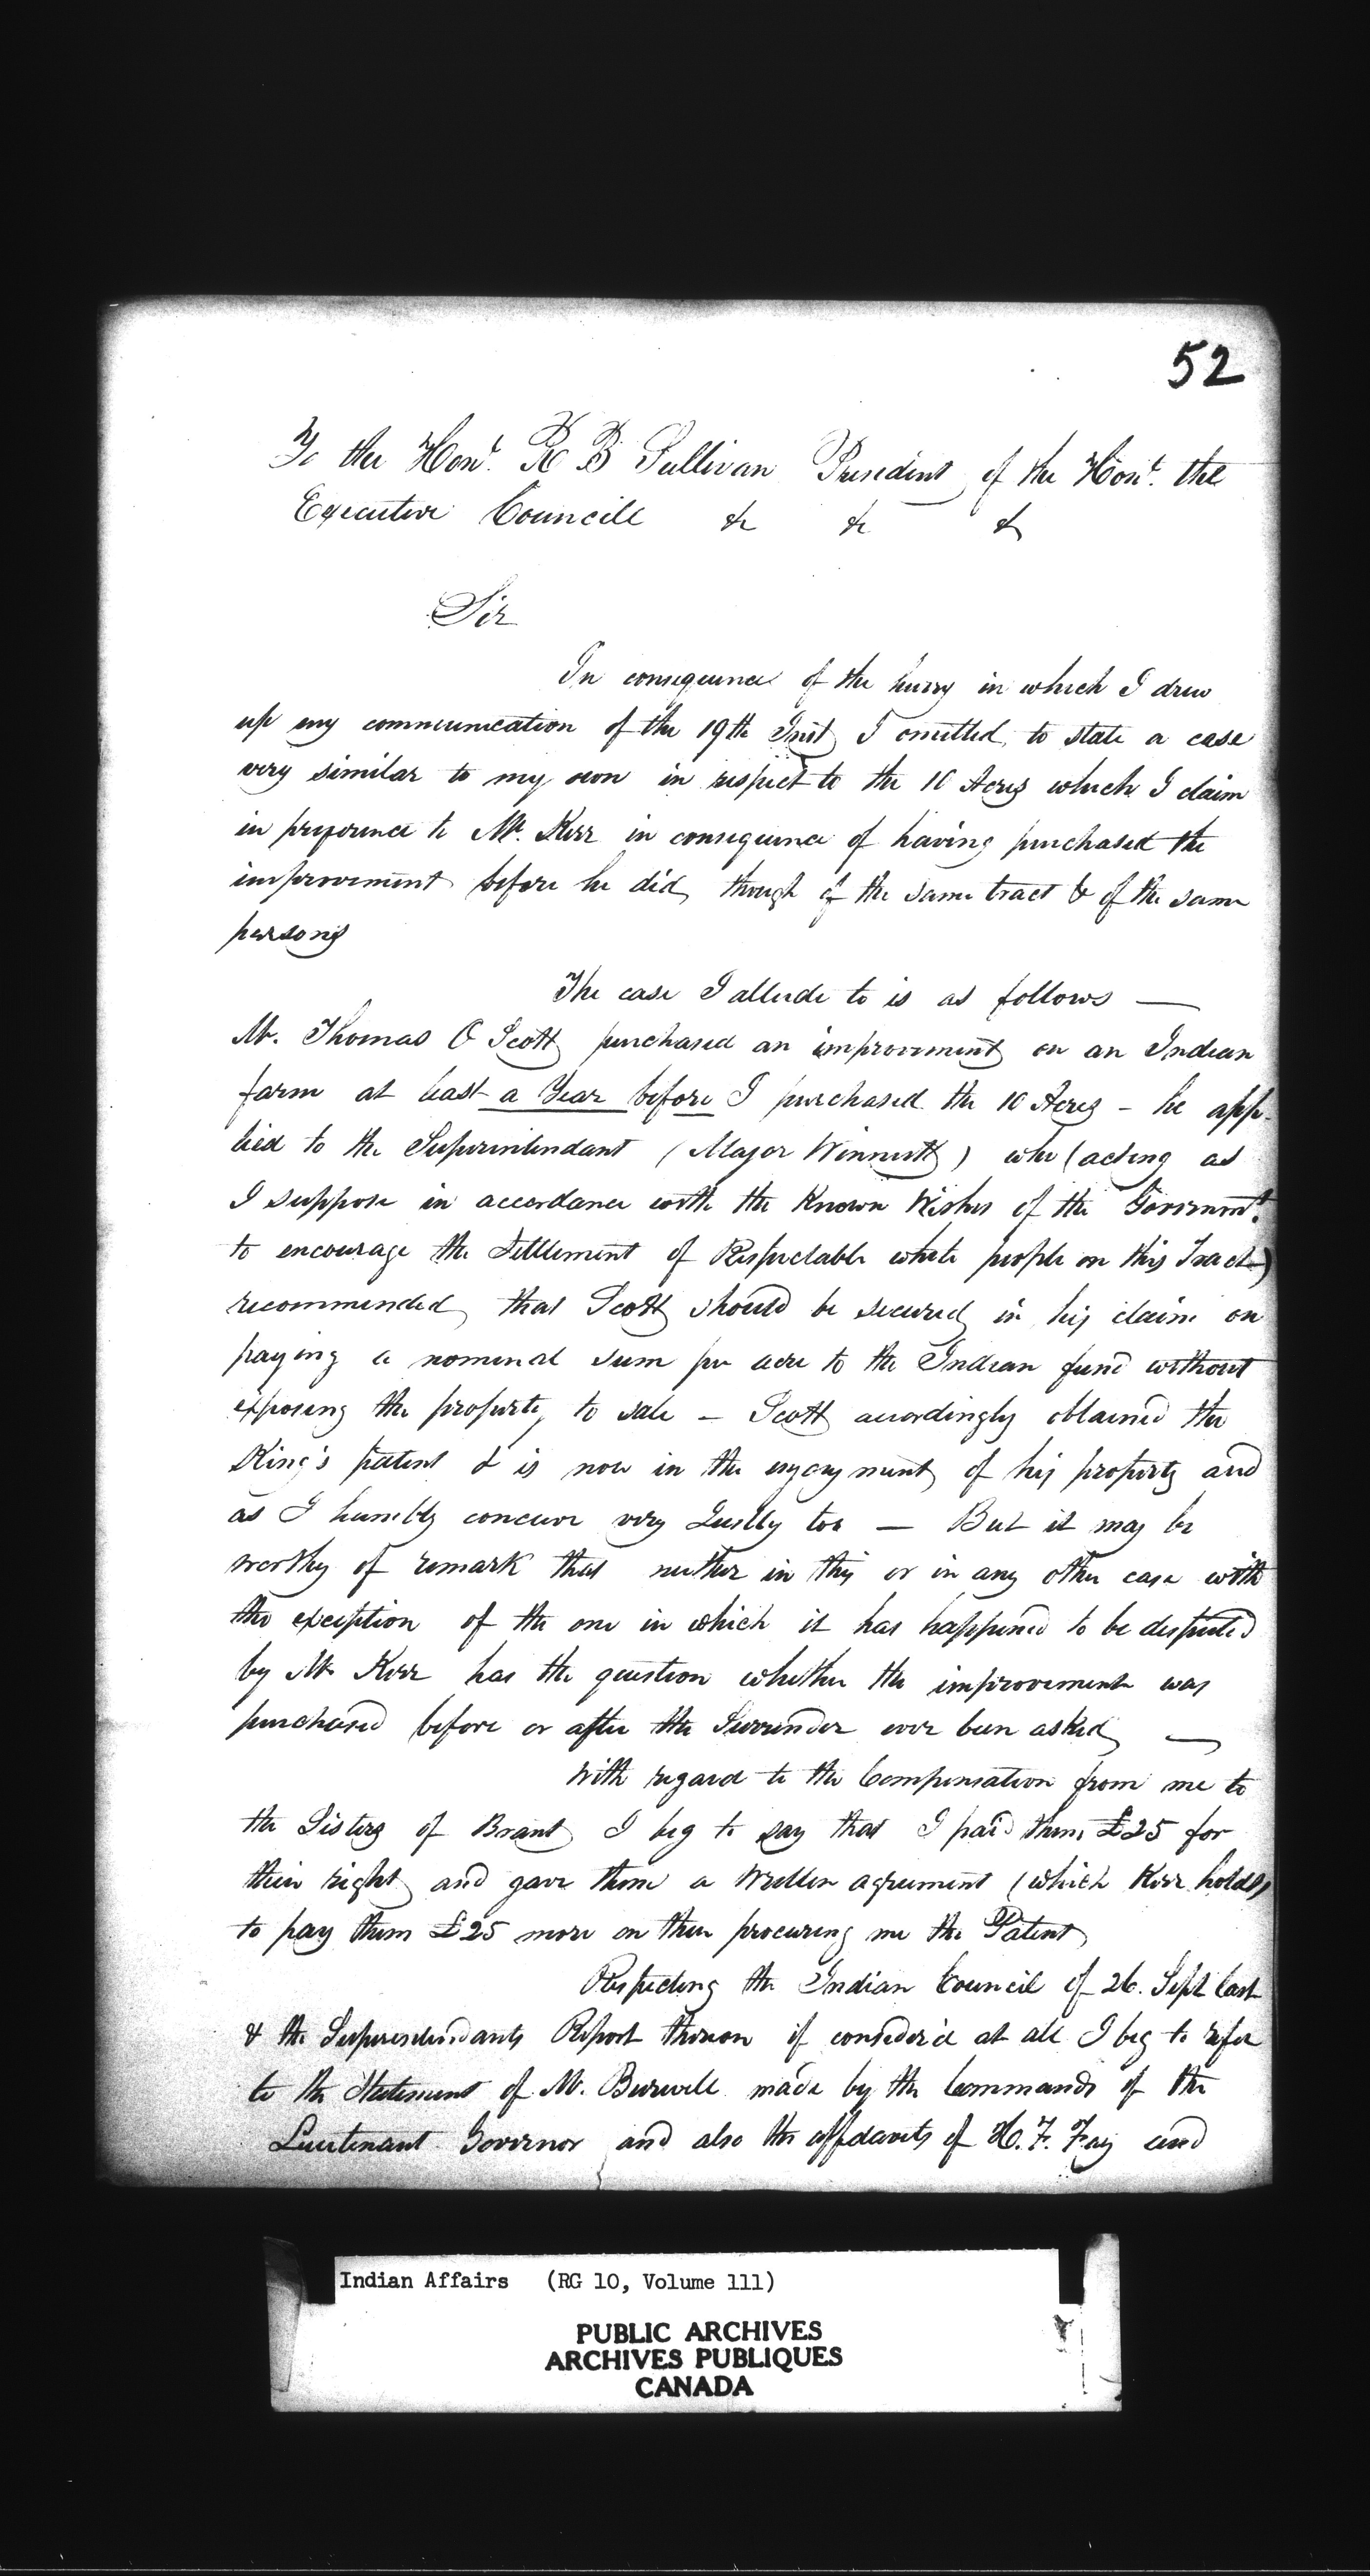 52
To the Hon. R B Sullivan President of the Hon. the
Executive Councill &c &c &c
Sir
In consequence of the hurry in which I drew
up my communication of the 19th Inst I omitted to state a case
very similar to my own in respect to the 10 Acres which I claim
in preference to Mr. Kerr in consequence of having purchased the
improvement before he did, though of the same tract & of the same
persons
The case I allude to is as follows —
Mr. Thomas O Scott purchased an improvement on an Indian
farm at least a Year before I purchased the 10 Acres – he app-
lied to the Superintendant (Major Winniett) who (acting as
I suppose in accordance with the Known Wishes of the Governmt.
to encourage the Settlement of Respectable white people on this Tract)
recommended that Scott should be secured in his claim on
paying a nominal sum per acre to the Indian fund without
exposing the property to sale – Scott accordingly obtained the
King's patent & is now in the enjoyment of his property and
as I humbly conceive very Justly too — But it may be
worthy of remark that neither in this or in any other case with
the exception of the one in which it has happened to be disputed
by Mr Kerr has the question whether the improvement was
purchased before or after the Surrender ever been asked —
With regard to the Compensation from me to
the Sisters of Brant I beg to say that I paid them £25 for
their right and gave them a written agreement (which Kerr holds)
to pay them £25 more on their procuring me the Patent
Respecting the Indian Council of 26. Sept last
& the Superintendants Report thereon if consider'd at all I beg to refer
to the Statement of Mr. Burwell made by the Commands of the
Lieutenant Governor and also the affidavits of H. F. Fay and
Indian Affairs (RG 10, Volume 111)
PUBLIC ARCHIVES
ARCHIVES PUBLIQUES
CANADA